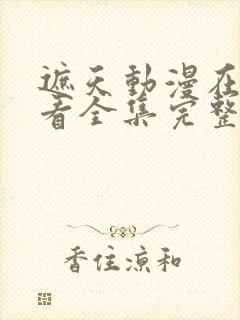 遮天動漫在
看全集完整
香住涼和